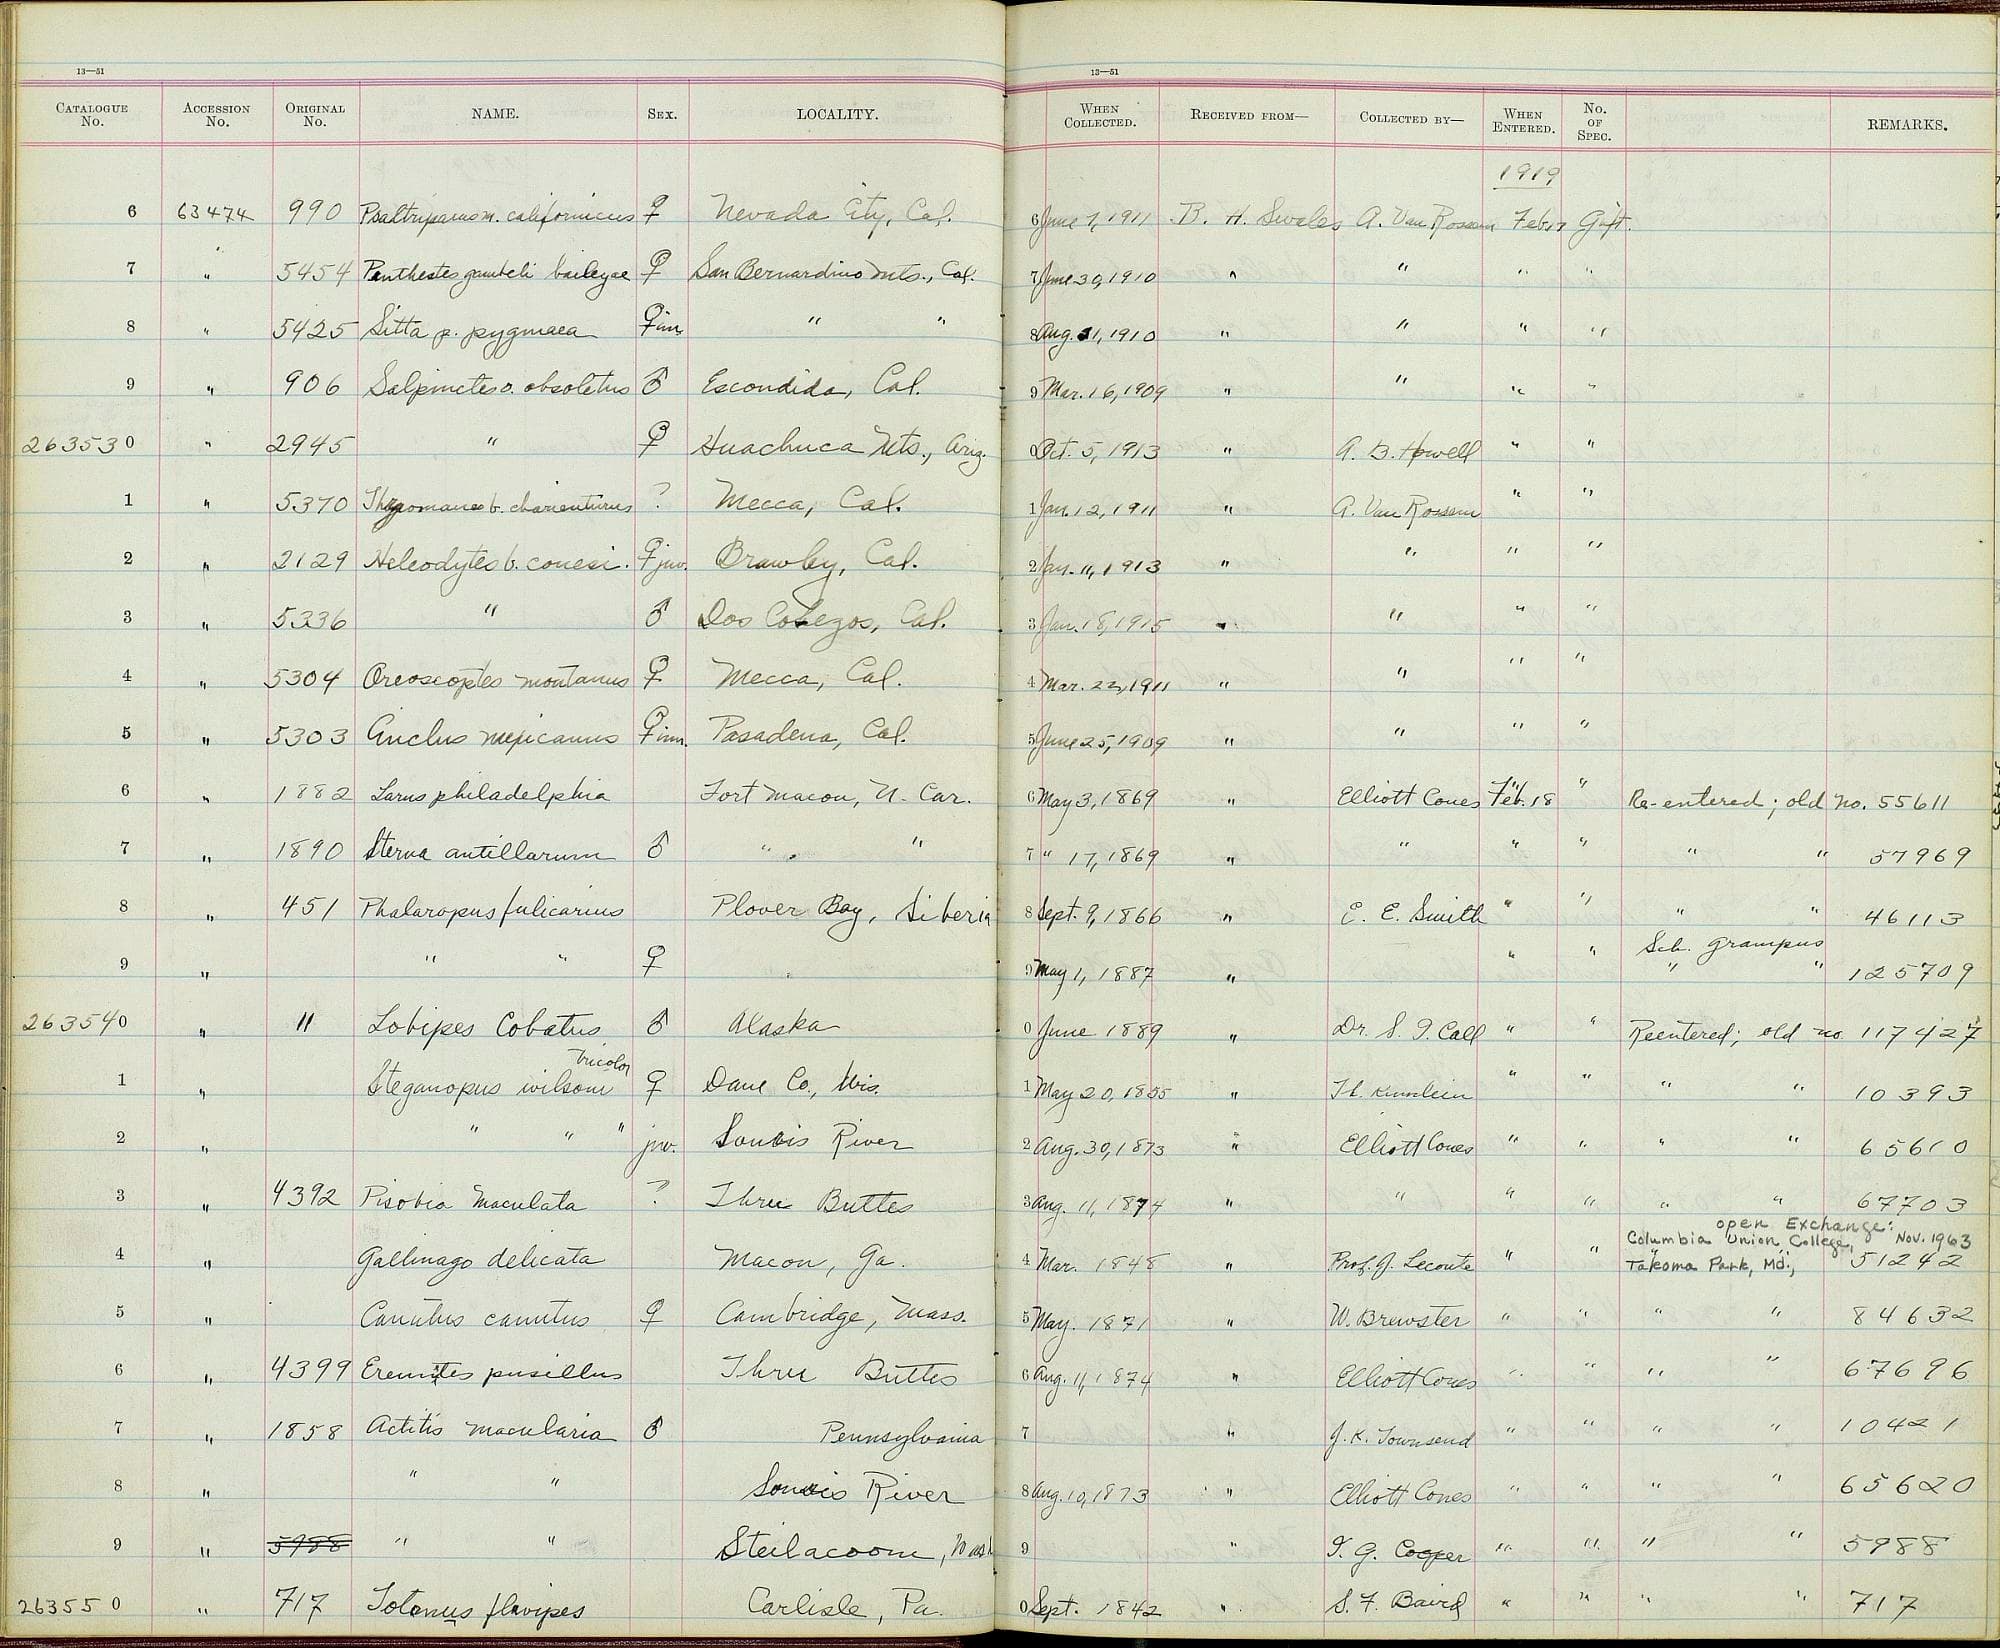 13—51 13—51
CATALOGUE No. ACCESSION No. ORIGINAL No. NAME. SEX. LOCALITY. WHEN COLLECTED. RECEIVED FROM— COLLECTED BY— WHEN ENTERED. No. OF SPEC. REMARKS.
1919
6 63474 990 Psaltriparus m. californicus ♀ Nevada City, Cal. 6 June 7, 1911 B. H. Swales A. Van Rossem Feb. 17 Gift.
7 " 5454 Penthestes gambeli baileyae ♀ San Bernardino Mts., Cal. 7 June 30, 1910 " " " "
8 " 5425 Sitta p. pygmaea ♀ im. " " 8 Aug. 31, 1910 " " " "
9 " 906 Salpinctes o. obsoletus ♂ Escondido, Cal. 9 Mar. 16, 1909 " " " "
263530 " 2945 " ♀ Huachuca Mts., Ariz. 0 Oct. 5, 1913 " A. B. Howell " "
1 " 5370 Thryomanes b. charienturus ? Mecca, Cal. 1 Jan. 12, 1911 " A. Van Rossem " "
2 " 2129 Heleodytes b. couesi. ♀ juv. Brawley, Cal. 2 Jan. 11, 1913 " " " "
3 " 5336 " ♂ Dos Cabezos, Cal. 3 Jan. 18, 1915 " " " "
4 " 5304 Oreoscoptes montanus ♀ Mecca, Cal. 4 Mar. 22, 1911 " " " "
5 " 5303 Cinclus mexicanus ♀ imm. Pasadena, Cal. 5 June 25, 1909 " " " "
6 " 1882 Larus philadelphia Fort Macon, N. Car. 6 May 3, 1869 " Elliott Coues Feb. 18 " Re-entered; old no. 55611
7 " 1890 Sterna antillarum ♂ " " 7 " 17, 1869 " " " " " " 57969
8 " 451 Phalaropus fulicarius Plover Bay, Siberia 8 Sept. 9, 1866 " E. E. Smith " " " " 46113
Sch. Grampus
9 " " " ♀ 9 May 1, 1887 " " " " " 125709
263540 " " Lobipes lobatus ♂ Alaska 0 June 1889 " Dr. S. J. Call " " Reentered; old no. 117427
tricolor
1 " Steganopus wilsoni ♀ Dane Co., Wis. 1 May 20, 1855 " Th. Kumlein " " " " 10393
2 " " " " juv. Souris River 2 Aug. 30, 1873 " Elliott Coues " " " " 65610
3 " 4392 Pisobia maculata ? Three Buttes 3 Aug. 11, 1874 " " " " " " 67703
open Exchange:
Columbia Union College, Nov. 1963
4 " Gallinago delicata Macon, Ga. 4 Mar. 1848 " Prof. J. Leconte " " Takoma Park, Md., 51242
5 " Canutus canutus ♀ Cambridge, Mass. 5 May. 1871 " W. Brewster " " " " 84632
6 " 4399 Ereunetes pusillus Three Buttes 6 Aug. 11, 1874 " Elliott Coues " " " " 67696
7 " 1858 Actitis macularia ♂ Pennsylvania 7 " J. K. Townsend " " " " 10421
8 " " " Souris River 8 Aug. 10, 1873 " Elliott Coues " " " " 65620
9 " 5988 " " Steilacoom, Wash 9 " J. G. Cooper " " " " 5988
263550 " 717 Totanus flavipes Carlisle, Pa. 0 Sept. 1842 " S. F. Baird " " " " 717